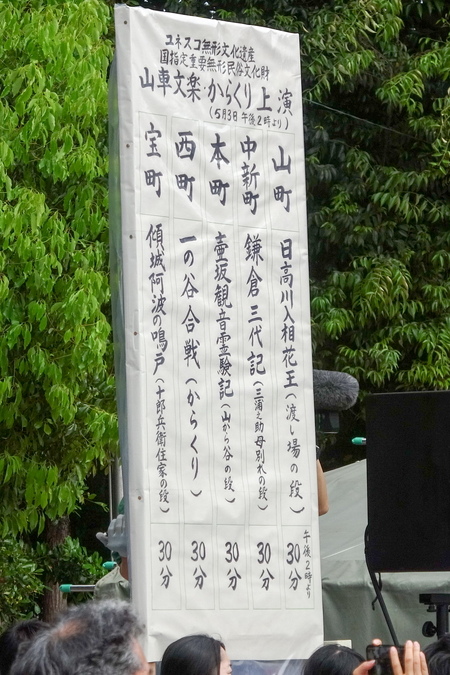 ユネスコ無形文化遺産
国指定重要無形民俗文化財
山車文楽・からくり上演
(5月3日 午後2時より)
山町
日高川入相花王(渡し場の段)
午後2時より
30分
中新町
鎌倉三代記(三浦之助母別れの段)
30分
本町
壷坂観音霊験記(山から谷の段)
30分
西町
一の谷合戦(からくり)
30分
宝町
傾城阿波の鳴戸(十郎兵衛住家の段)
30分